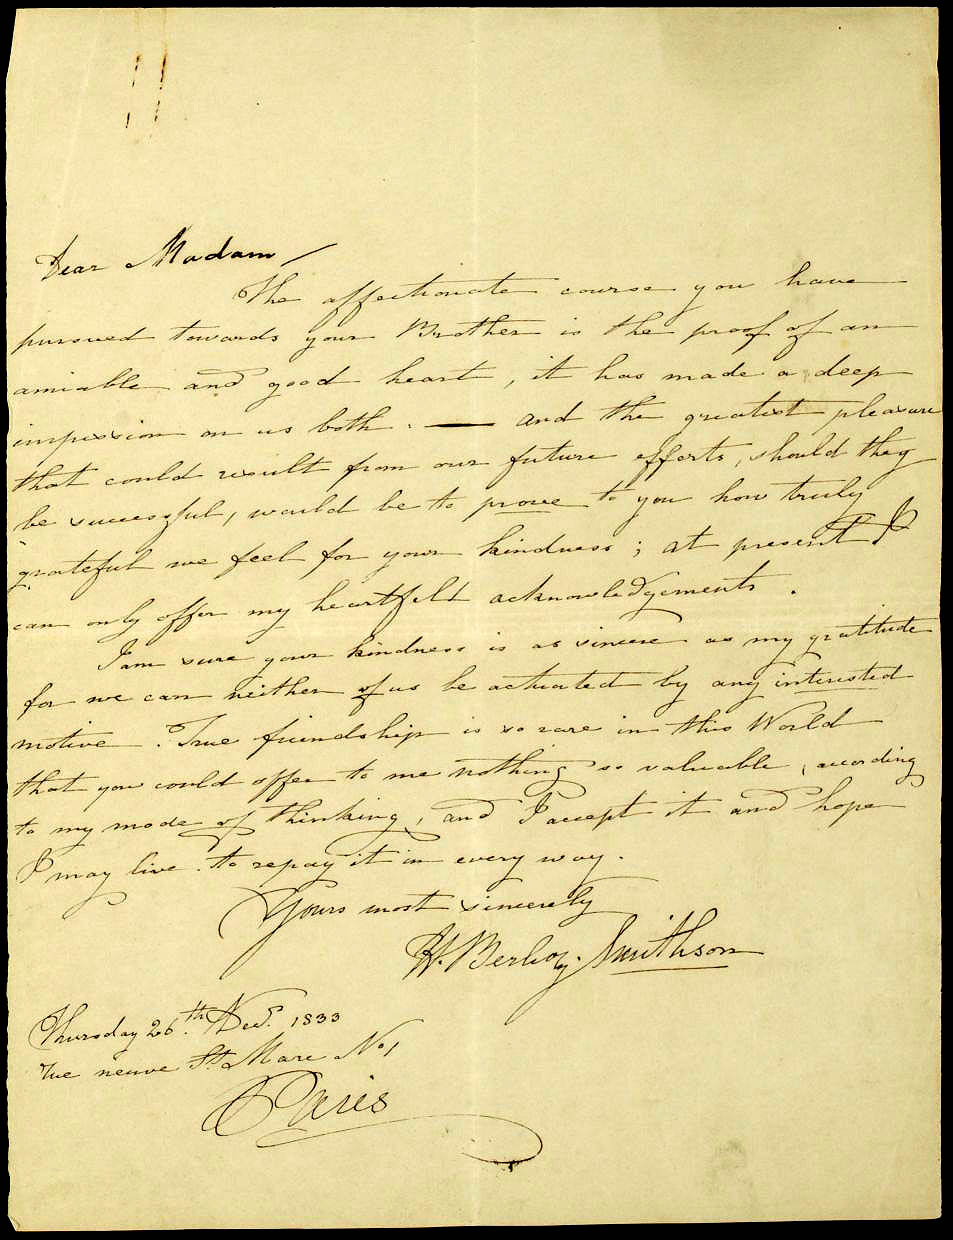 Dear Madam,
The affectionate course you have
pursued towards your Brother is the proof of an
amiable and good heart, it has made a deep
impression on us both. — And the greatest pleasure
that could result from our future efforts, should they
be successful, would be to prove to you how truly
grateful we feel for your kindness; at present I
can only offer my heartfelt acknowledgements.
I am sure your kindness is as sincere as my gratitude
for we can neither of us be actuated by any interested
motive. True friendship is so rare in this World
that you could offer to me nothing so valuable, according
to my mode of thinking, and I accept it and hope
I may live to repay it in every way.
Yours most sincerely
H. Berlioz. Smithson
Thursday 26th. Decr. 1833
rue neuve St. Marc No 1
Paris